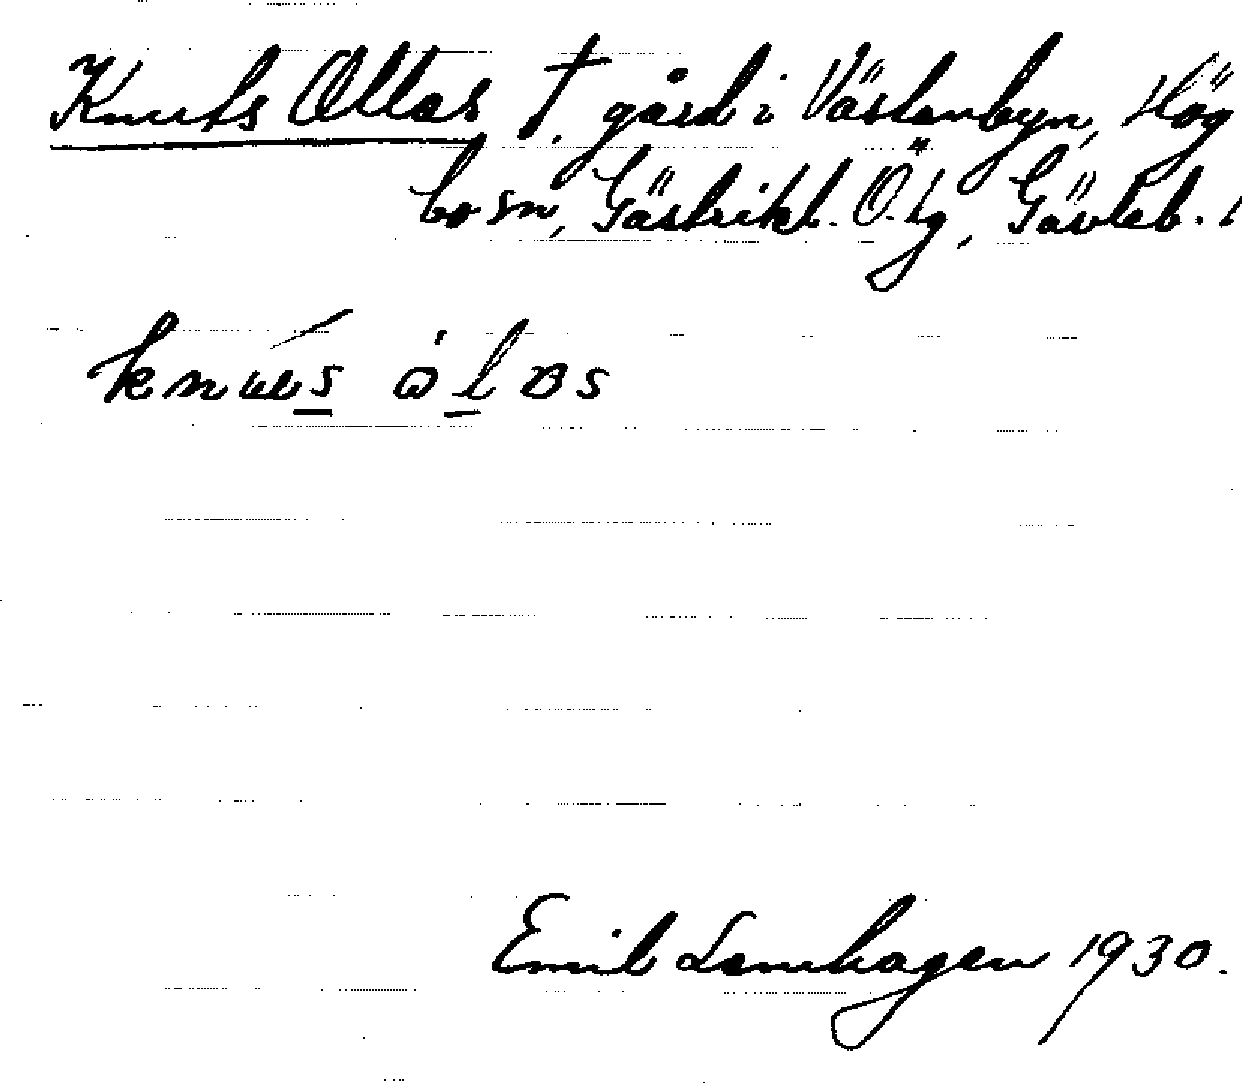 Knuts Ollas †. gård i Västanbyn, Hög
bo sn, Gästrikl. Ö. tg, Gävleb. l
Emil Lenhagen 1930.